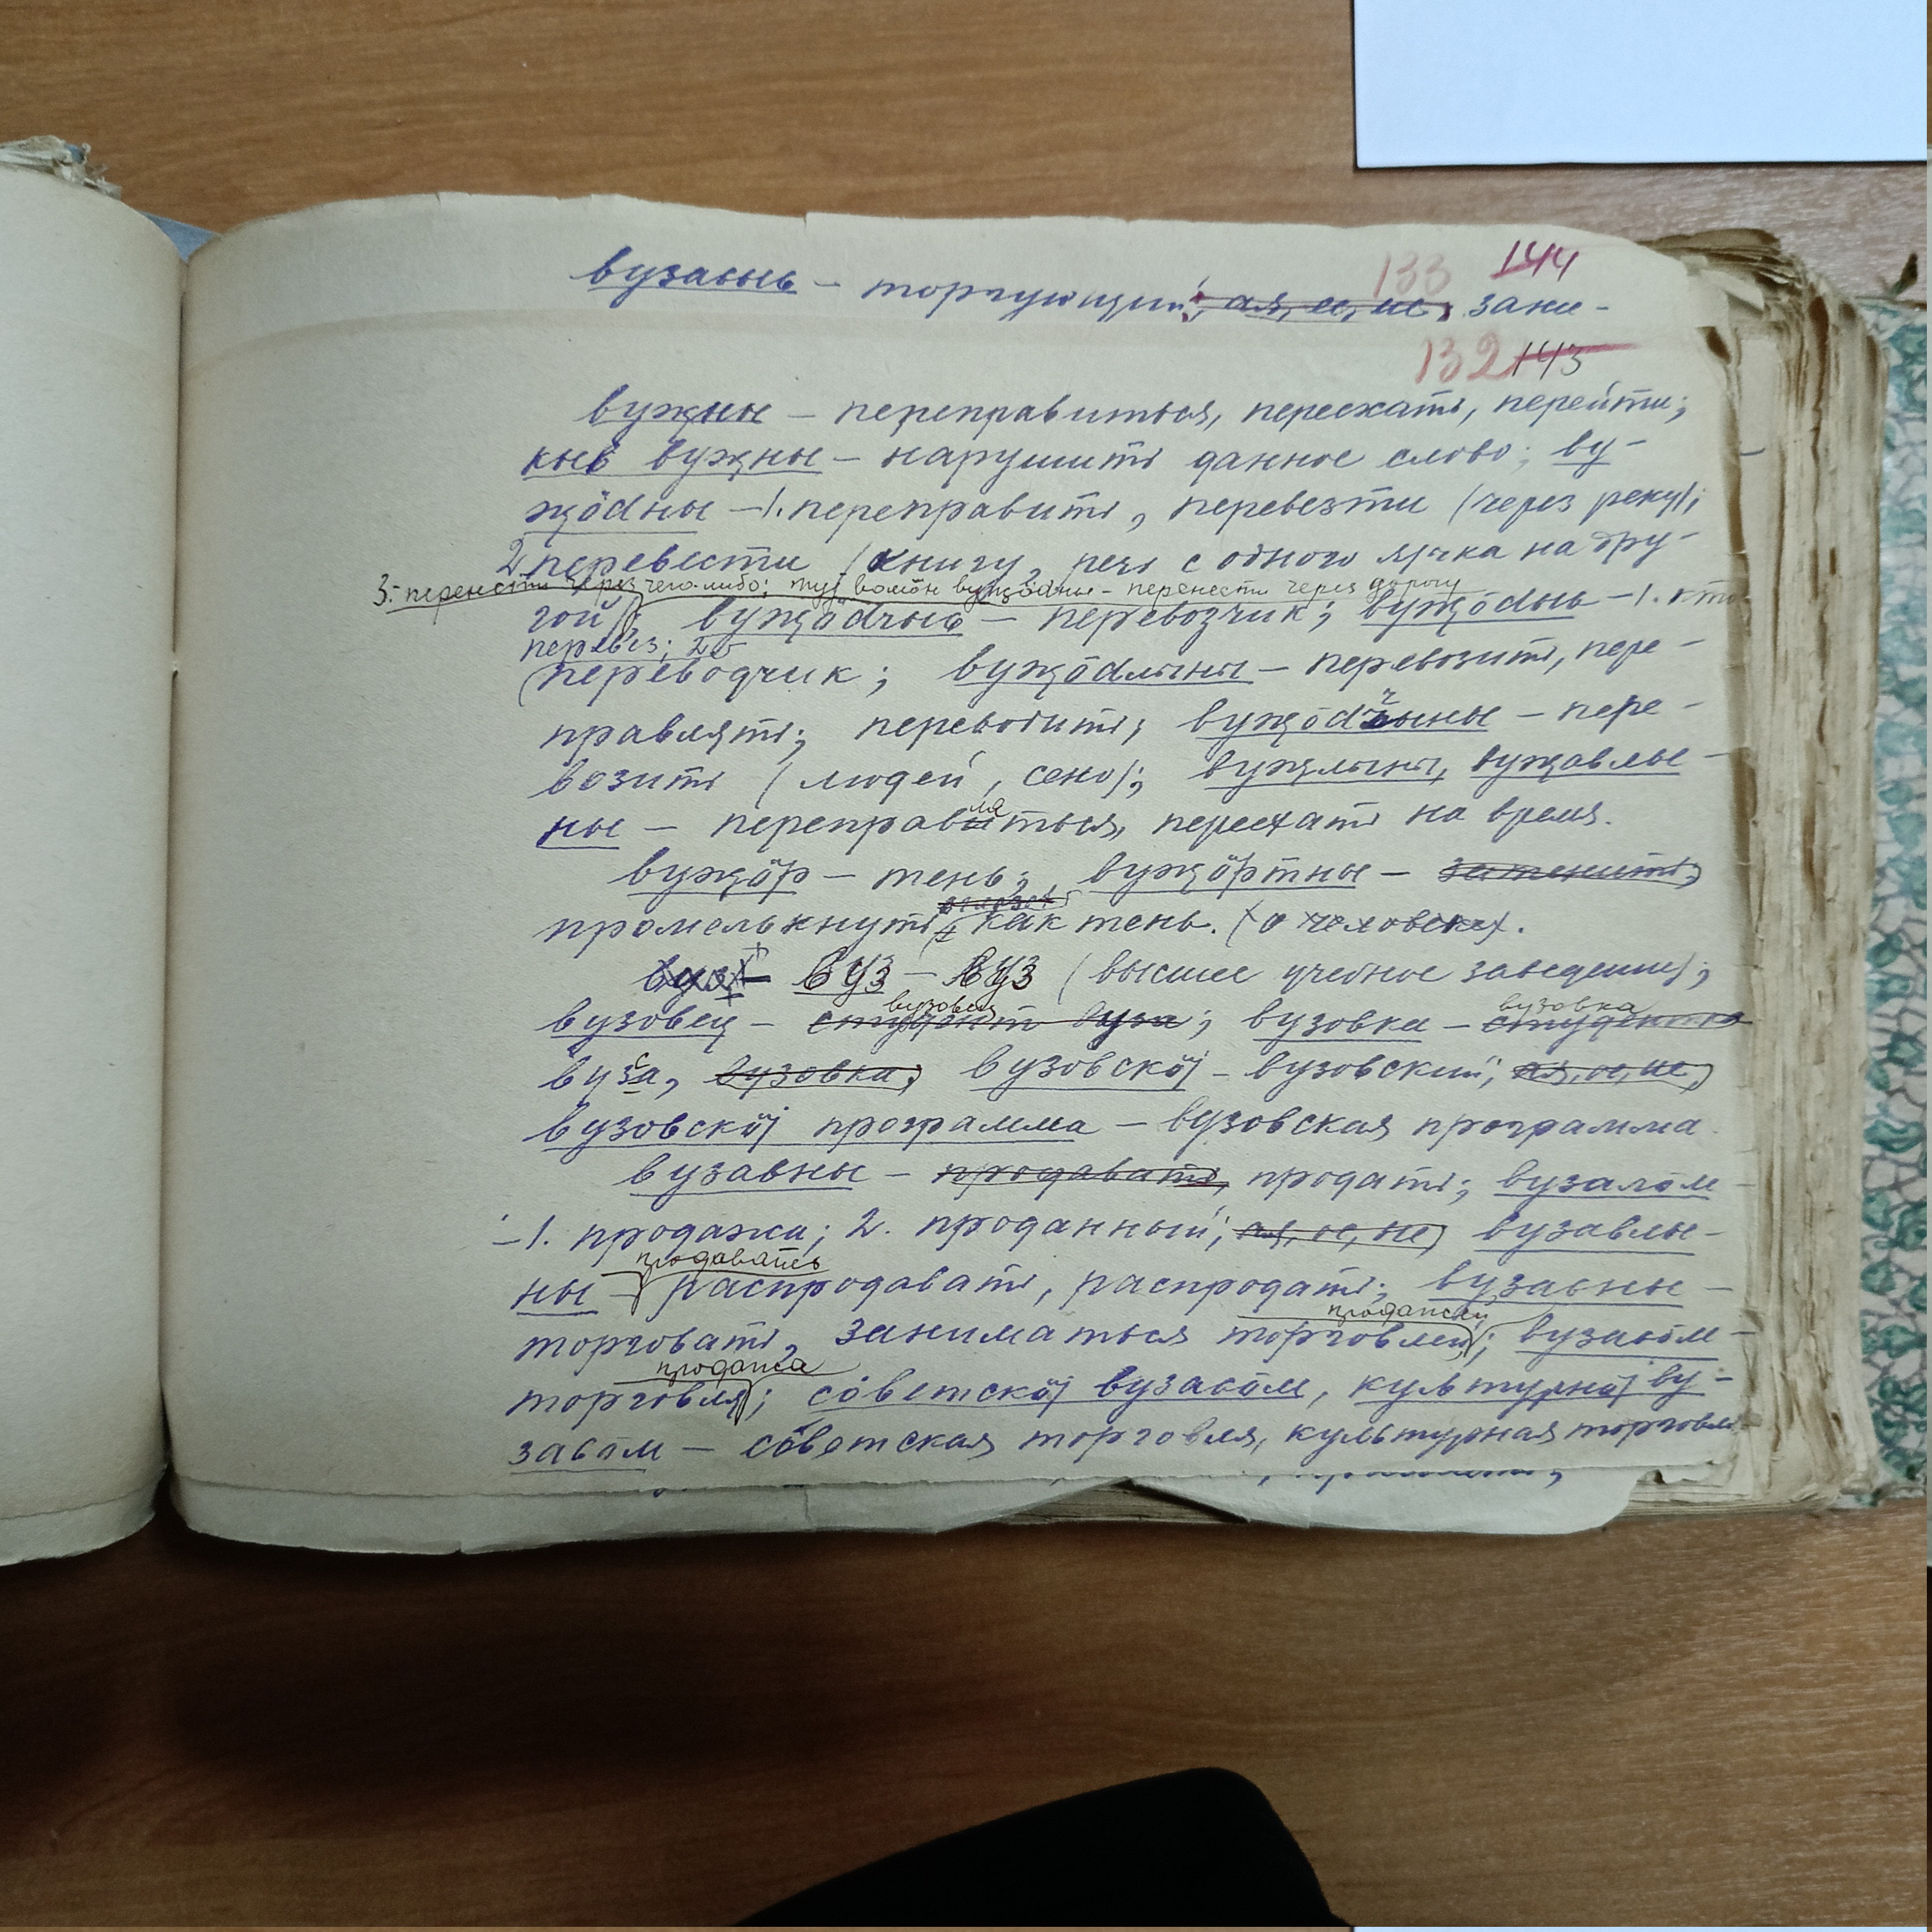 133 144
вузасьысь – торгующий; ая, ее, ие, зани-
132 143
вужны – переправиться, переехать, перейти;
кыв вужны – нарушить данное слово; ву-
жӧдны – 1. переправить, перевезти (через реку);
2 перевести (книгу, речь с одного языка на дру-
3. перенести через чего-либо; туй вомӧн вужӧдны – перенести через дорогу
гой); вужӧдчысь – перевозчик; вужӧдысь – 1. кто
перевёз; 2
переводчик; вужӧдлыны – перевозить, пере-
правлять; переводить; вужӧдчыны – пере-
возить (людей, сено); вужлыны, вужавлы-
ля
ны – переправиться, переехать на время.
вужӧр – тень; вужӧртны – затенить,
промелькнуть как тень. (о человеке).
вуз – ВУЗ (высшее учебное заведение);
вузовец вузовка
вузовец – студент вуза; вузовка – студентка
вуза, вузовка; вузовскӧј – вузовский; ая, ое, ие,
вузовскӧј программа – вузовская программа.
вузавны – продавать, продать; вузалӧм –
– 1. продажа; 2. проданный; ая, ое, ые, вузавлы-
продавать
ны – распродавать, распродать; вузасны –
продажей
торговать, заниматься торговлей; вузасӧм –
продажа
торговля; сӧветскӧј вузасӧм, культурнӧј ву-
засӧм – советская торговля, культурная торговля